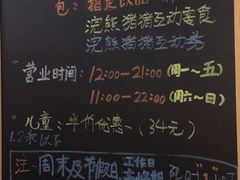 包：指定饮品一
浣熊猪猪互动零食
浣熊猪猪互动券
营业时间：12:00-21:00（周一~五）
11:00-22:00（周六~日）
儿童：半价优惠（34元）
1.2米以下
注：周末及节假日 工作日